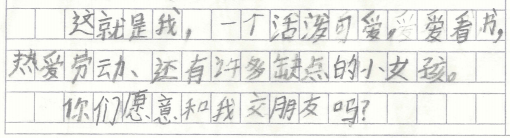 这就是我，一个活泼可爱，爱看书，
热爱劳动、还有许多缺点的小女孩。
你们愿意和我交朋友吗？